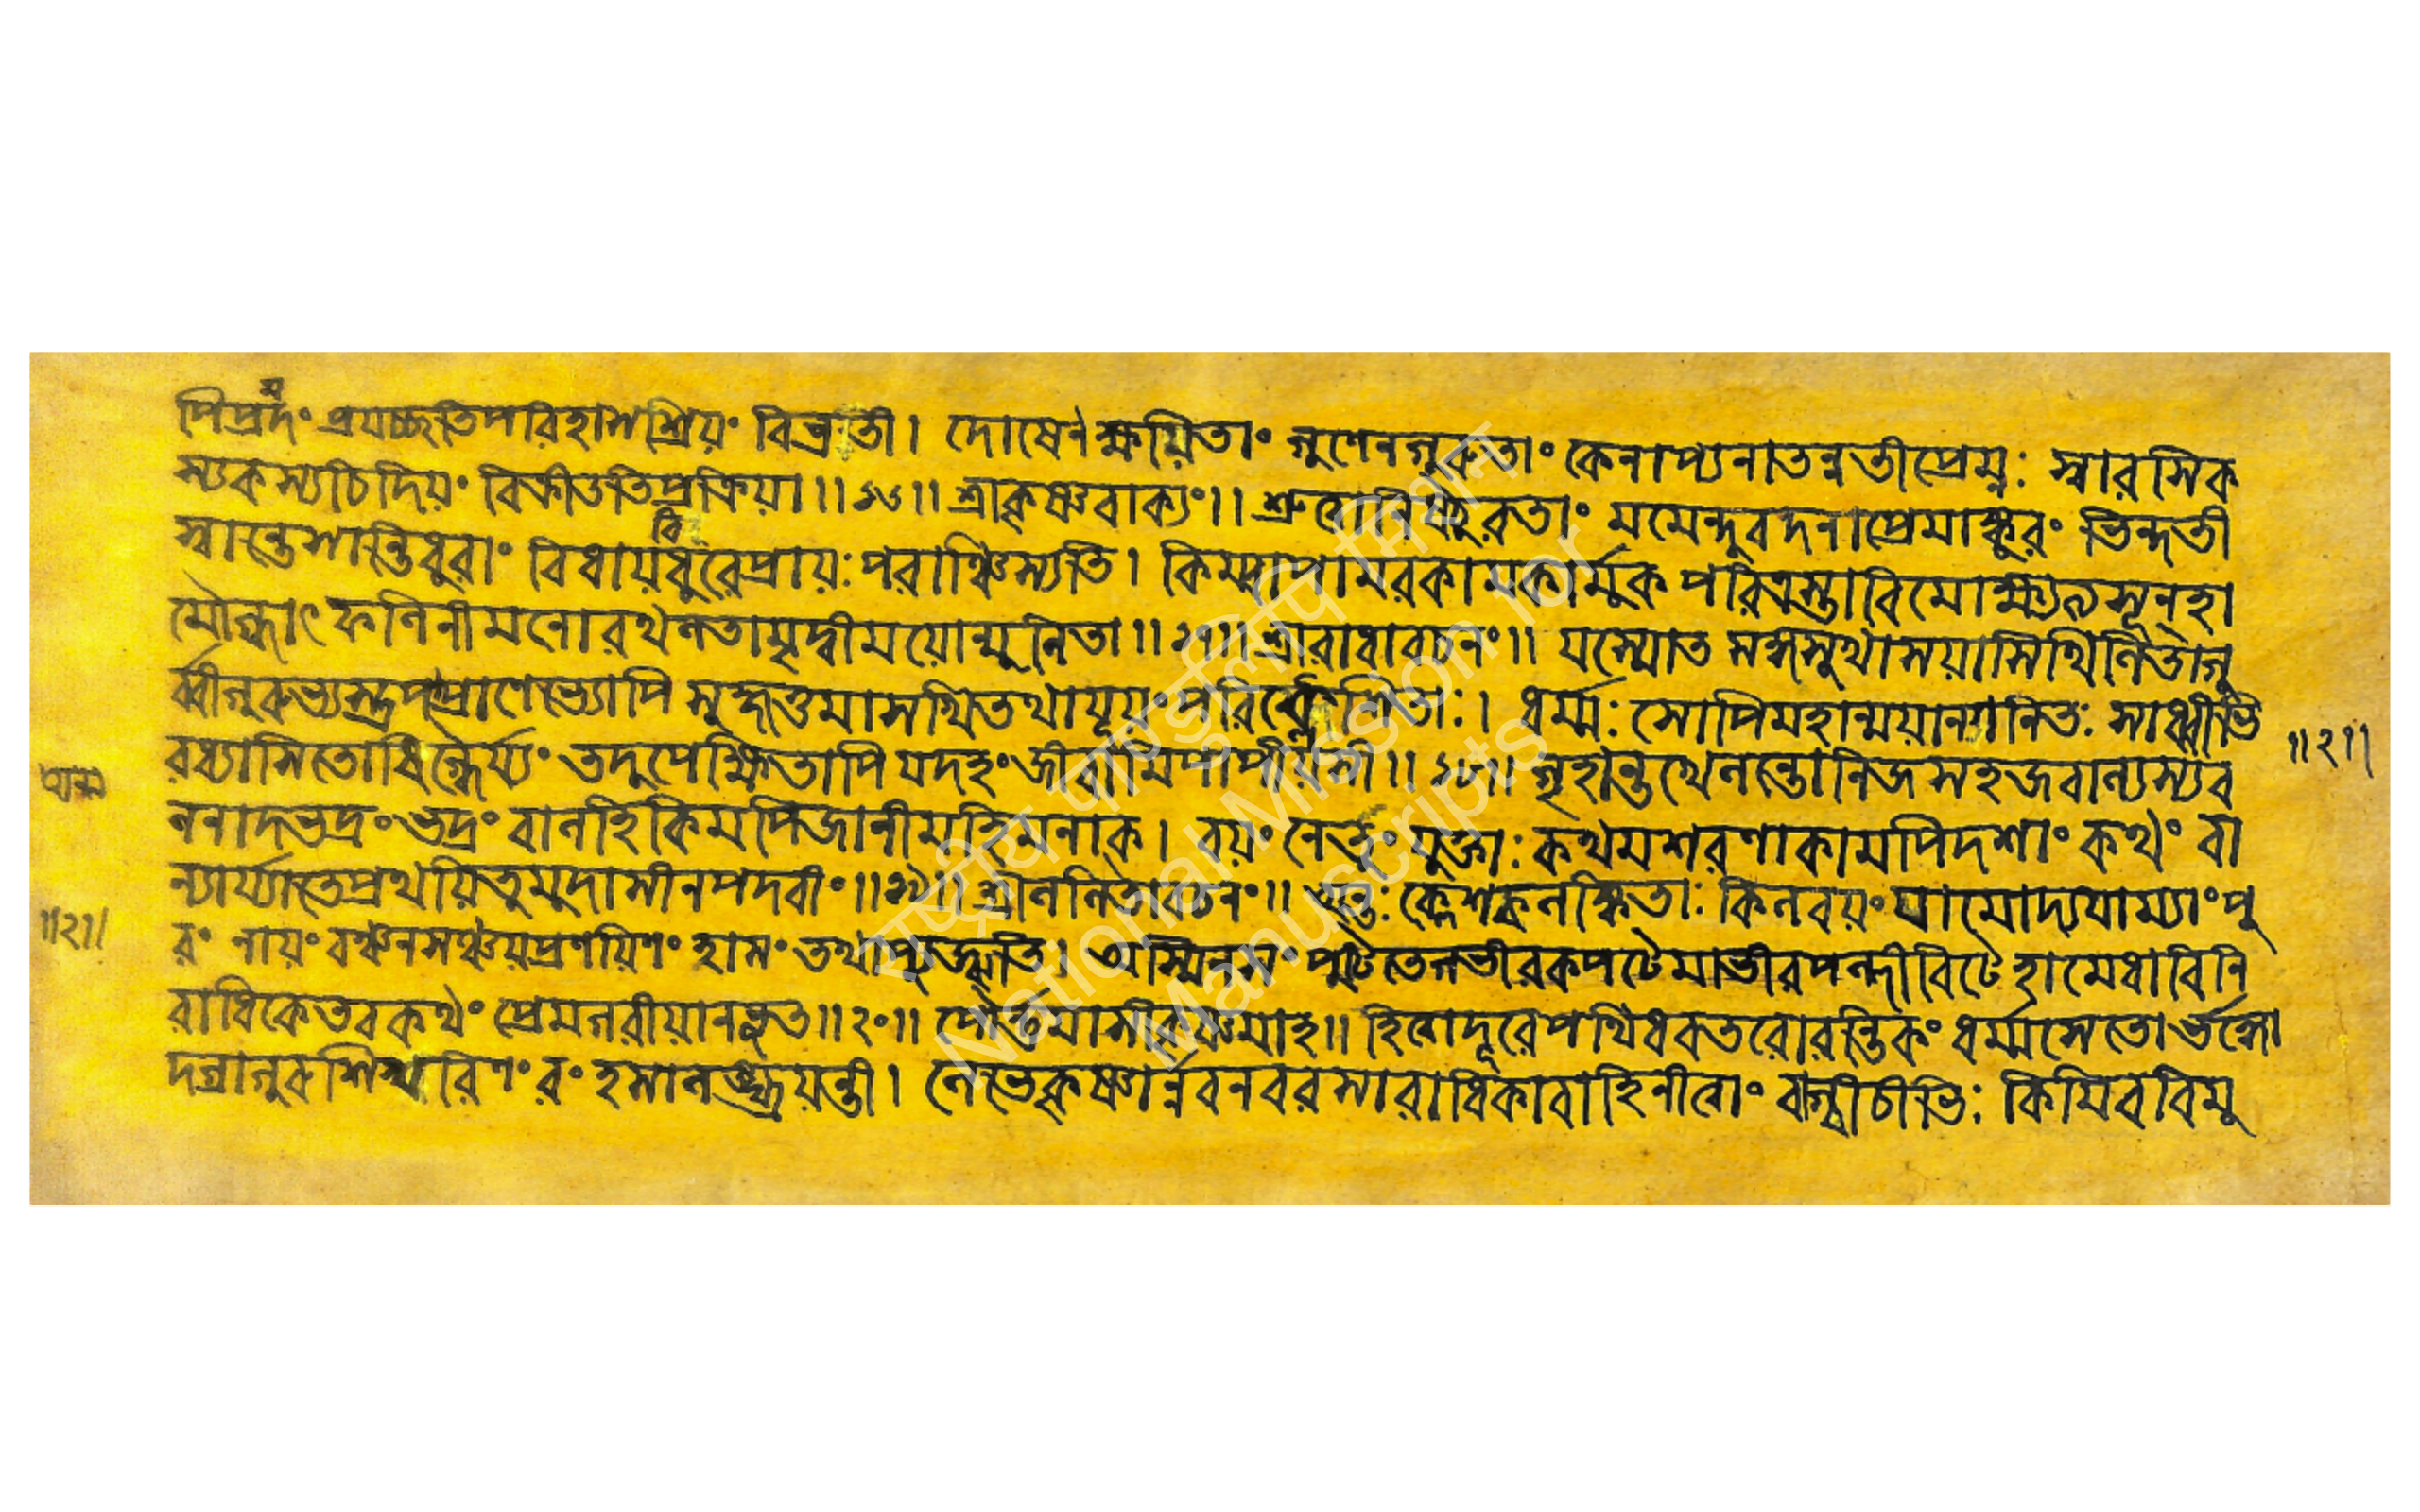 পিপ্রমদং প্রযচ্ছতিপরিহাসশ্রিয়ং বিভ্রতী। দোষেণক্ষয়িতাং গুণেনগুরুতাং কেনাপ্যনাতন্বতীপ্রেম্নঃ স্বারসিক
স্যকস্যচিদিয়ং বিক্রীডতিপ্রক্রিয়া॥১৬॥ শ্রীকৃষ্ণবাক্যং॥ শ্রুত্বানিষ্ঠুরতাং মমেন্দুবদনাপ্রেমাঙ্কুরং ভিন্দতী
স্বান্তেশান্তিধুরাং বিধায়বিধুরেপ্রায়ঃপরাঞ্চিস্যতি। কিম্বাপামরকামকার্ম্মুকপরিত্রস্তাবিমোক্ষ্যত্যসূন্হা
মৌগ্ধ্যাৎ ফলিনীমনোরথলতামৃদ্বীময়োন্মূলিতা॥১৭॥ শ্রীরাধাবচনং॥ যস্যোত সঙ্গসুখাশয়াসিথিলিতাগু
র্ব্বীগুরুভ্যস্ত্রপাপ্রাণেভ্যোপি সুহৃত্তমাসখিতথাযূয়ং পরিক্লেশিতাঃ। ধর্ম্মঃ সোপিমহান্ময়ানগনিতঃ সাধ্বীভি
রধ্যাসিতোধিগ্ধৈর্য্যং তদুপেক্ষিতাপি যদহং জীবামিপাপীয়সী॥১৮॥ গৃহান্তখেলন্তোনিজসহজবাল্যস্যব
লনাদভদ্রং ভদ্রং বানহিকিমপিজানীমহিমনাক। বয়ং নেতুং যুক্তাঃকথমশরণাকামপিদশাং কথং বা
ন্যার্য্যাতেপ্রথয়িতুমুদাসীনপদবী॥১৯॥ শ্রীললিতাবচনং॥ অন্তঃ ক্লেশকলঙ্কিতাঃ কিলবয়ং যামোদ্যযাম্যাং পু
রং নায়ং বঞ্চনসঞ্চয়প্রণয়িণং হাসং তথাপ্যুজ্ঝতি। অস্মিন্সং পুটিতেগভীরকপটৈমাভীরপল্লীবিটে হামেধাবিনি
রাধিকেতবকথং প্রেমাগরীয়ানভূত॥২০॥ পৌর্ণমাসীবাক্যমাহ॥ হিত্বাদূরেপথিধবতরোরন্তিকং ধর্ম্মসেতোর্ভঙ্গো
দগ্রাগুরুশিখরিণং রং হসালঙ্ঘয়ন্তী। লেভেকৃষ্ণার্ণবনবরসারাধিকাবাহিনীত্বাং বাগ্বীচীভিঃ কিমিববিমু
॥২॥
॥২॥